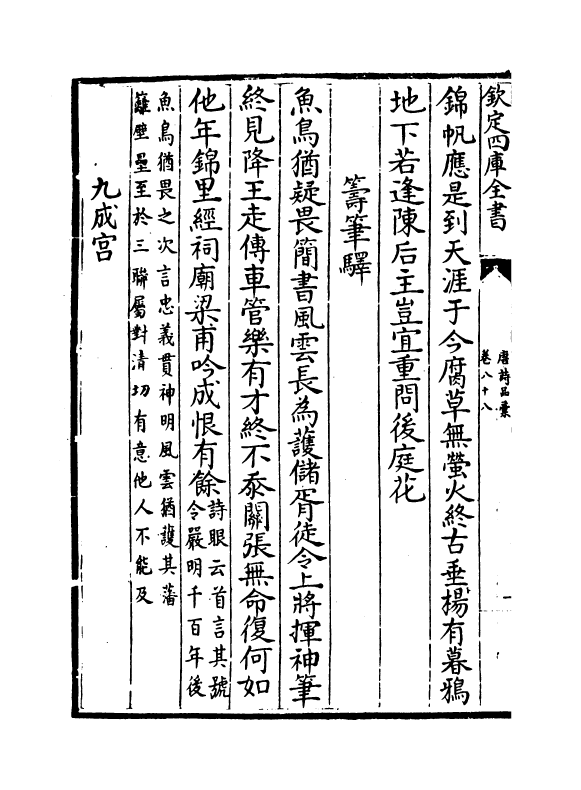 欽定四庫全書
唐詩品彙
卷八十八
錦帆應是到天涯于今腐草無螢火終古垂楊有暮鴉
地下若逢陳后主豈宜重問後庭花
籌筆驛
魚鳥猶疑畏簡書風雲長為護儲胥徒令上將揮神筆
終見降王走傳車管樂有才終不忝關張無命復何如
他年錦里經祠廟梁甫吟成恨有餘詩眼云首言其號
令嚴明千百年後
魚鳥猶畏之次言忠義貫神明風雲猶護其藩
籬壁壘至於三聯屬對清切有意他人不能及
九成宫